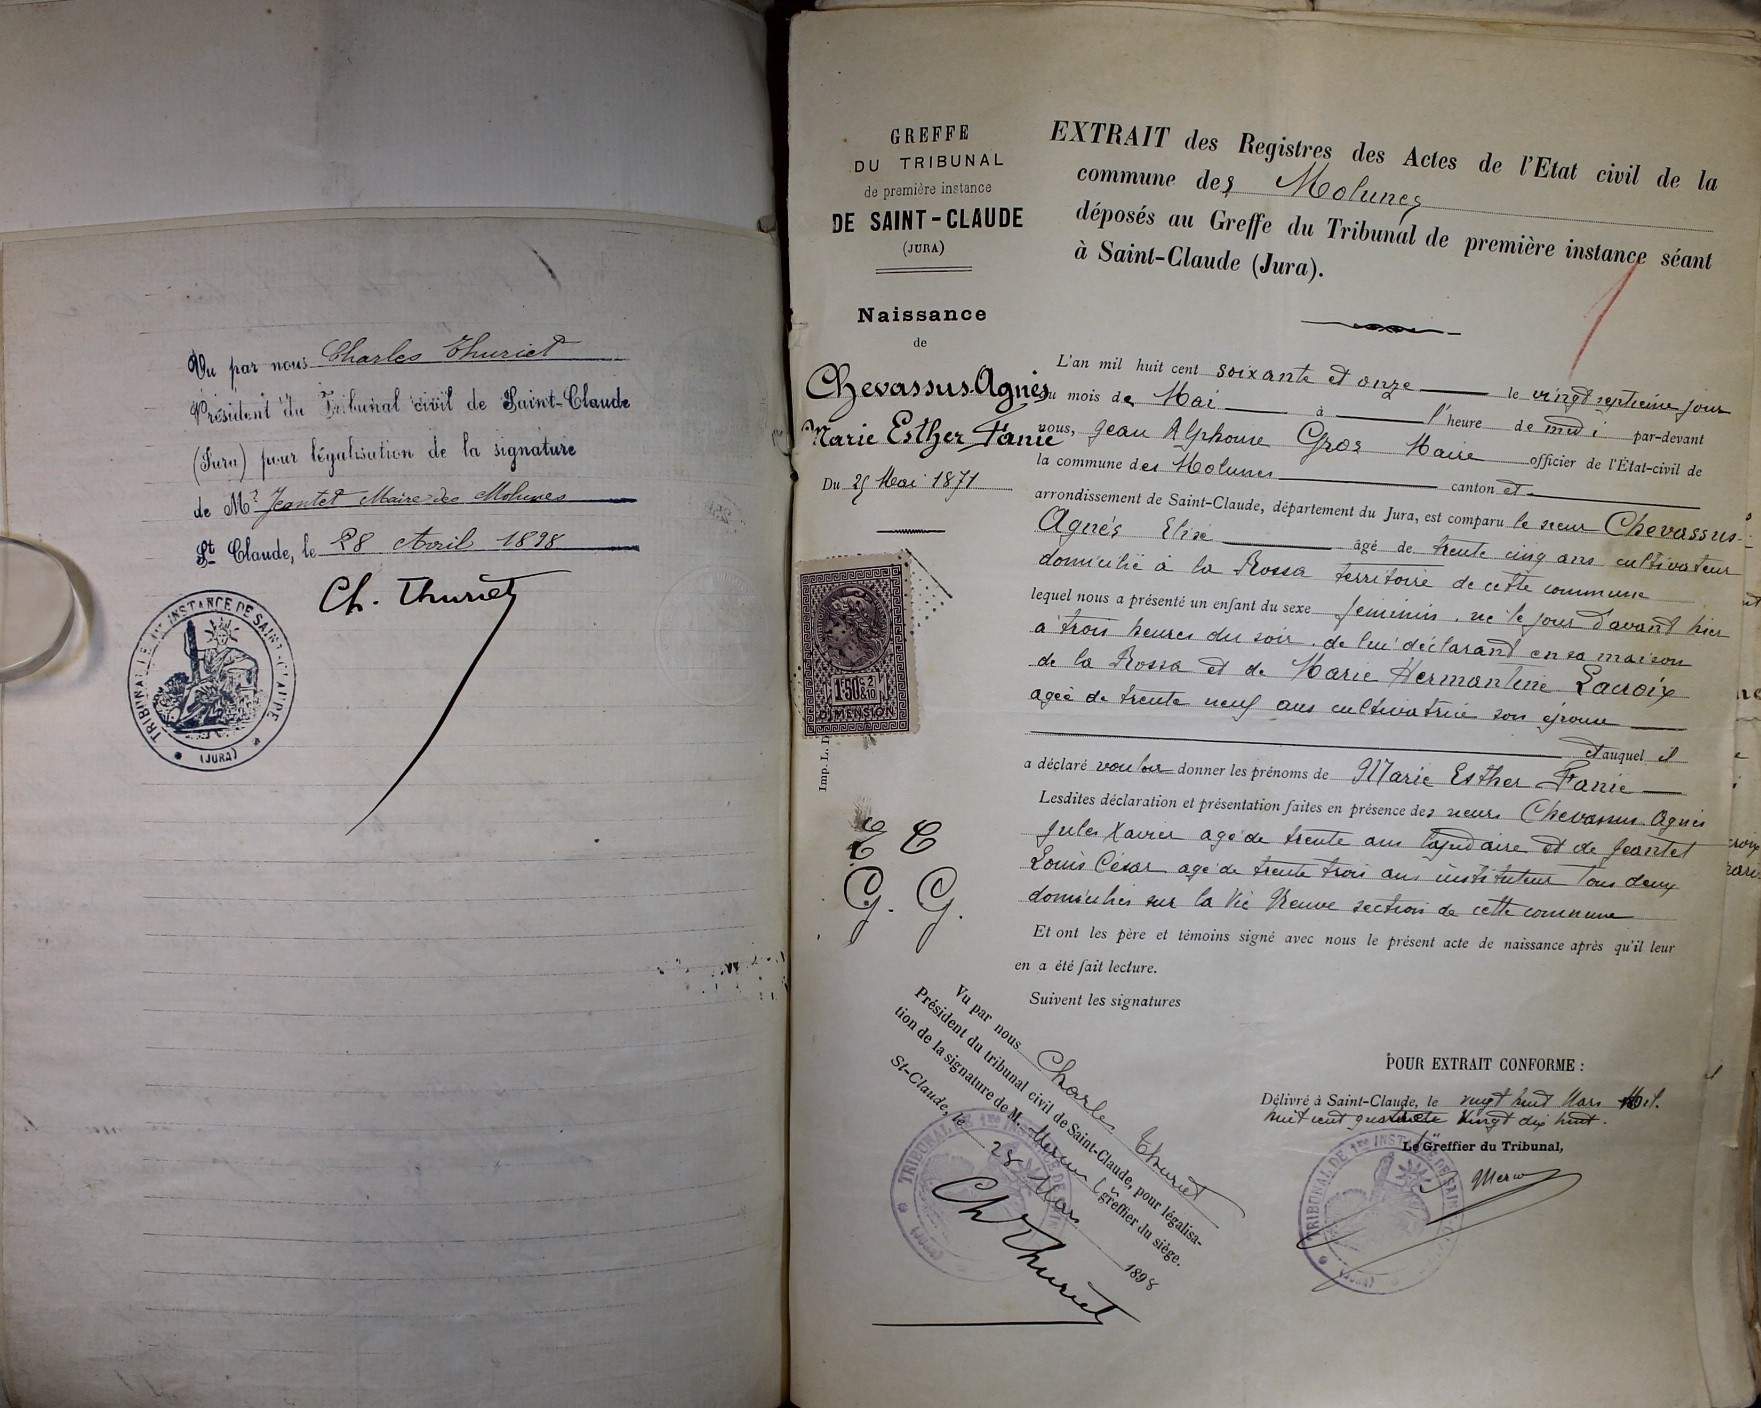 Vu par nous Charles Thuriet
Président du Tribunal civil de Saint-Claude
(Jura) pour légalisation de la signature
de Mr Jeantet Maire des Molunes
St Claude, le 28 Avril 1898
Ch. Thuriet
TRIBUNAL DE 1re INSTANCE DE SAINT-CLAUDE
(JURA)
GREFFE
DU TRIBUNAL
de première instance
DE SAINT-CLAUDE
(JURA)
Naissance
de
Chevassus-Agnès
Marie Esther Fanie
Du 25 Mai 1871
1F50c 2/10
DIMENSION
Imp. L.
E C
G. G.
EXTRAIT des Registres des Actes de l'Etat civil de la
commune des Molunes
déposés au Greffe du Tribunal de première instance séant
à Saint-Claude (Jura).
L'an mil huit cent soixante et onze le vingt septième jour
du mois de Mai à l'heure de midi par-devant
nous, Jean Alphonse Gros Maire officier de l'État-civil de
la commune des Molunes canton et
arrondissement de Saint-Claude, département du Jura, est comparu le sieur Chevassus-
Agnès Elisé âgé de trente cinq ans cultivateur
domicilié à la Rossa territoire de cette commune
lequel nous a présenté un enfant du sexe féminin, né le jour d'avant hier
à trois heures du soir, de lui déclarant en sa maison
de la Rossa et de Marie Hermantine Lacroix
agée de trente neuf ans cultivatrice son épouse
et auquel il
a déclaré vouloir donner les prénoms de Marie Esther Fanie
Lesdites déclaration et présentation faites en présence des sieurs Chevassus Agnès
Jules Xavier agé de trente ans lapidaire et de Jeantet
Louis César agé de trente trois ans instituteur tous deux
domiciliés sur la Vie Neuve section de cette commune
Et ont les père et témoins signé avec nous le présent acte de naissance après qu'il leur
en a été fait lecture.
Suivent les signatures
Vu par nous Charles Thuriet
Président du tribunal civil de Saint-Claude, pour légalisa-
tion de la signature de M. greffier du siège.
St-Claude, le 28 Mars 1898
Ch Thuriet
TRIBUNAL DE 1re INSTANCE DE
(JURA)
POUR EXTRAIT CONFORME :
Délivré à Saint-Claude, le vingt huit Mars mil
huit cent quatre vingt dix huit.
Le Greffier du Tribunal,
TRIBUNAL DE 1re INSTANCE DE SAINT
(JURA)